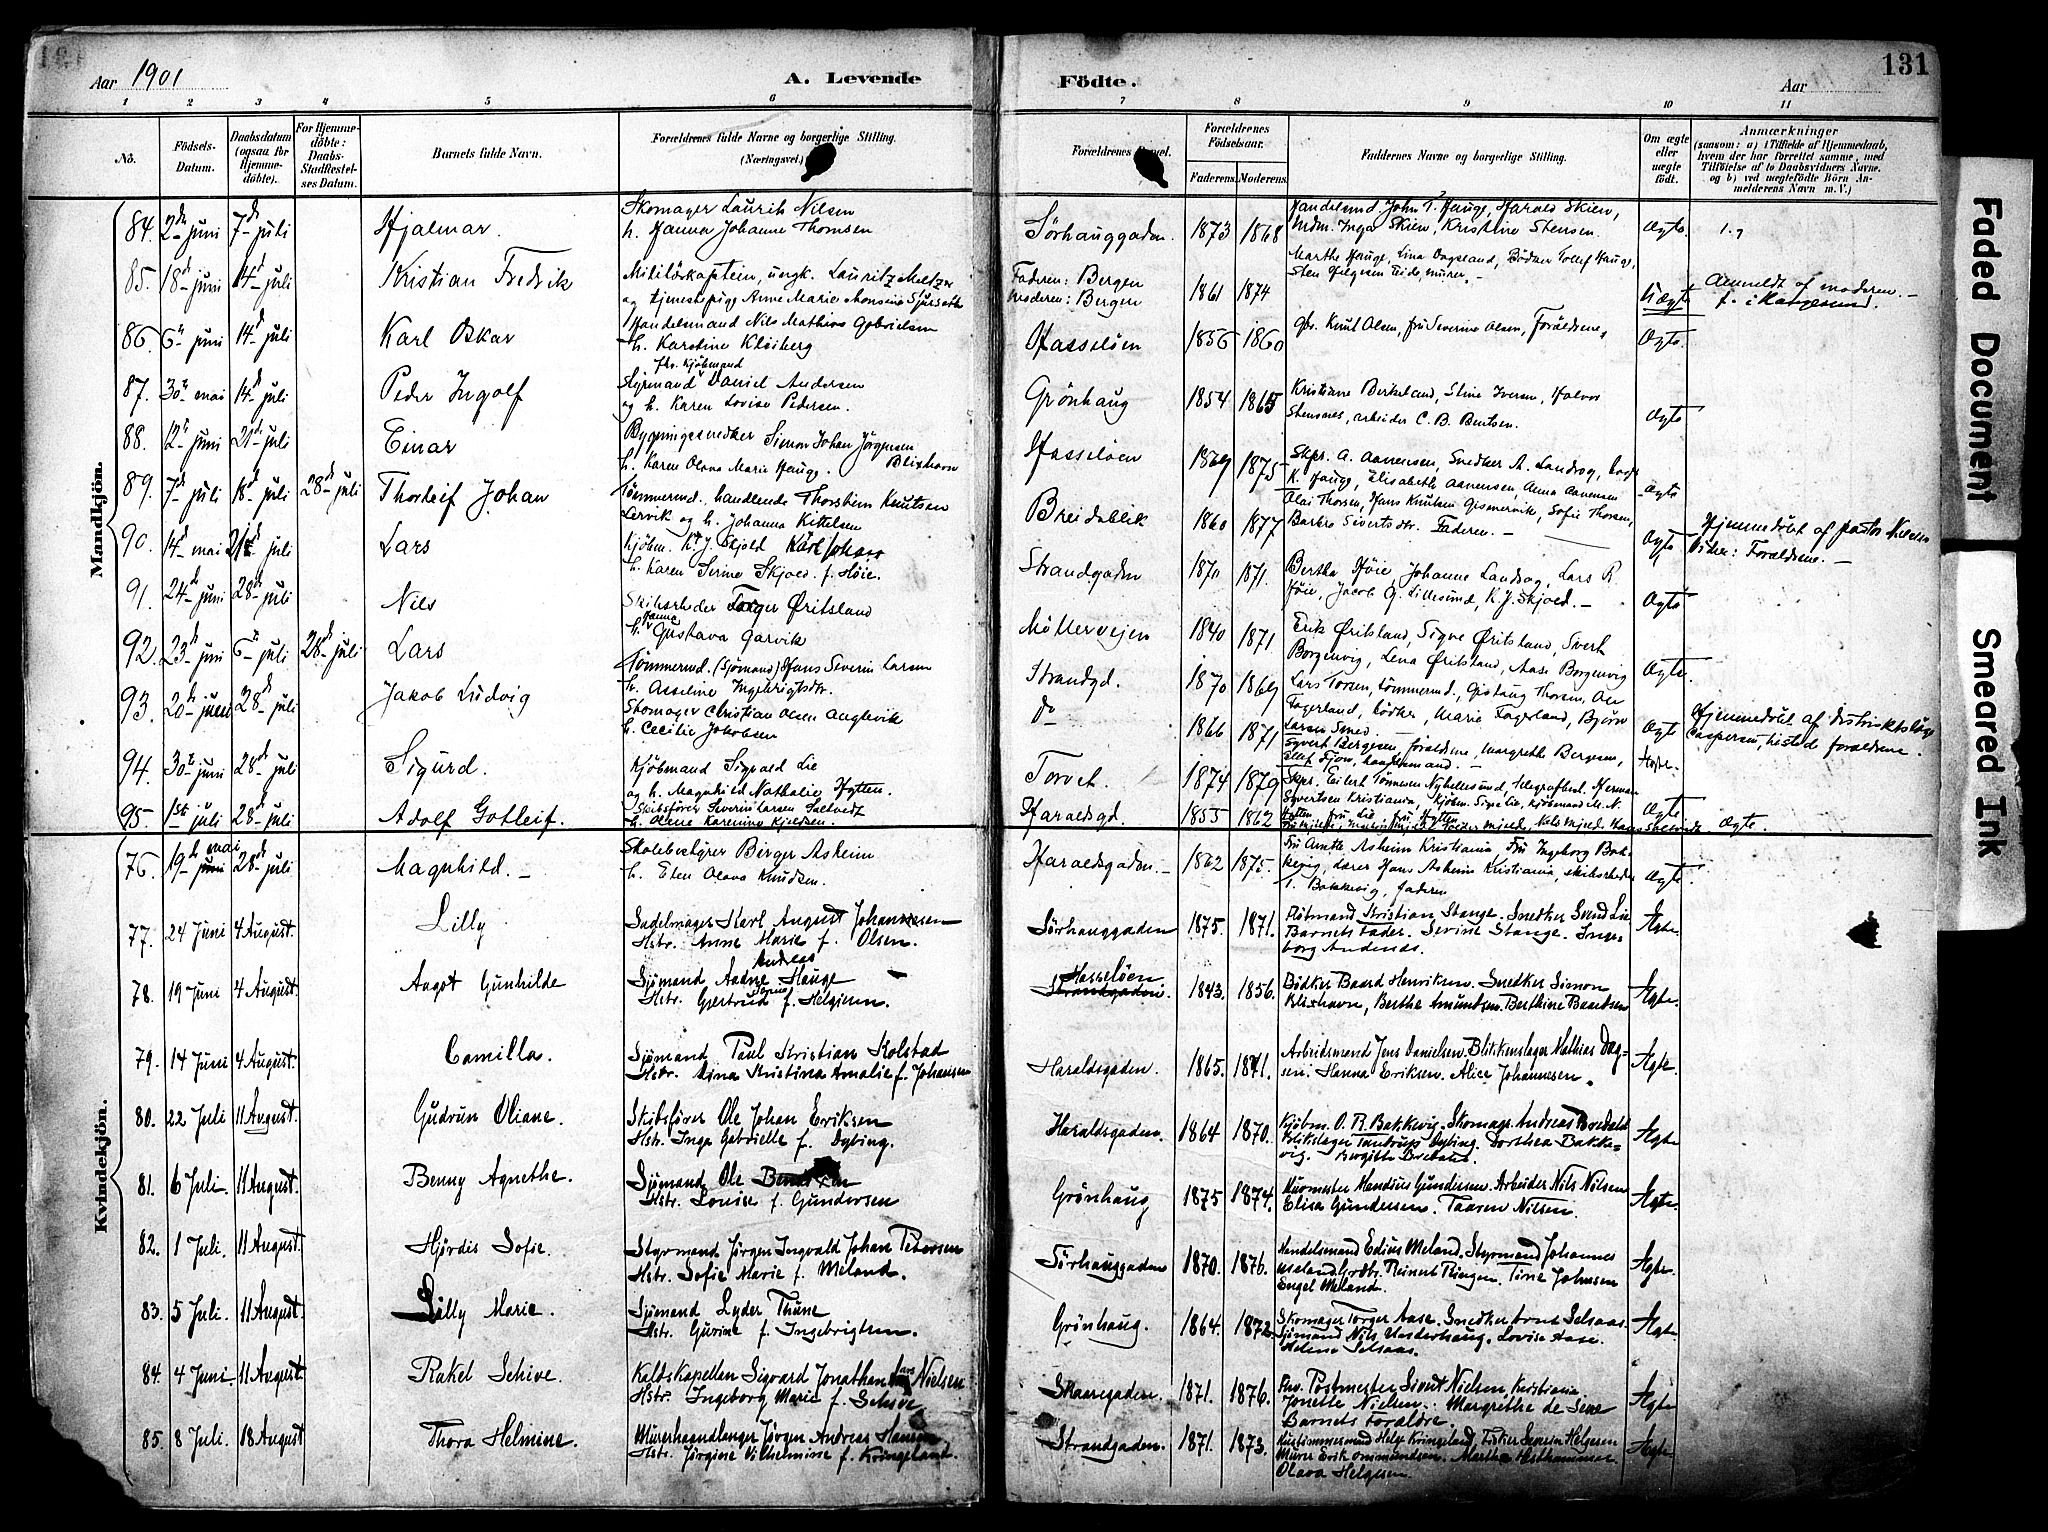 131
Aar 1901
A. Levende
Födte.
Aar
1 2 3 4 5 6 7 8 9 10 11
No.
Födsels-Datum.
Daabsdatum (ogsaa for Hjemmedöbte).
For Hjemmedöbte: Daabs-Stadfæstelses Datum.
Barnets fulde Navn.
Forældrenes fulde Navne og borgerlige Stilling. (Næringsvei.)
Forældrenes
Forældrenes Födselsaar.
Faderens. Moderens.
Faddernes Navne og borgerlige Stilling.
Om ægte eller uægte födt.
Anmærkninger
(saasom: a) i Tilfælde af Hjemmedaab, hvem der har forrettet samme, med Tilföielse af to Daabsvidners Navne, og b) ved uægtefödte Börn Anmelderens Navn m. V.)
Mandkjön.
84. 2 juni 7 juli Hjalmar.
Skomager Laurits Nilsen
h. Hanna Johanne Thomsen
Sörhauggaden. 1873 1868
Handelsmd John T. Hauge, Harald Skien,
Mdm. Inga Skien, Kristine Stensen.
Ægte.
85. 18 juni 14 juli Kristian Fredrik
Militärkaptein, ungk. Lauritz Meltzer
og tjenestepige Anne Marie Monsine
Faderen: Bergen
Moderen: Bergen
1861 1874
Uægte
Anmeldt af moderen.
86. 6 juni 14 juli Karl Oskar
Handelsmand Nils Mathias Gabrielsen
h. Karoline Kleiberg
Hasselöen 1856 1860
Knut Olsen, fru Severine Olsen, Forældrene,
Ægte.
87. 30 mai 14 juli Peder Ingolf
Styrmand Daniel Andersen
og h. Karen Lovise Pedersen.
Grönhaug 1854 1865
Kristiane Birkeland, Stine Iversen, Halvor
Stensnes, arbeider C. B. Bentsen.
Ægte
88. 12 juni 21 juli Einar
Bygningssnedker Simon Johan Jörgensen
Blixhavn
h. Karen Olava Marie Hauge.
Hasselöen 1869 1875
Ægte
89. 7 juli 18 juli 28 juli Thorleif Johan
Tömmermd. handlende Thorstein Knutsen
Lervik og h. Johanna Kittelsen
Breidablik 1860 1877
Olai Thorsen, Hans Knutsen Gismervik, Sofie Thorsen,
Faderen.
Ægte
Hjemmedöbt af pastor Nielsen
Vidner: Forældrene.
90. 14 mai 21 juli Lars
Kjöbm. K. J. Skjold Karl Johan
h. Karen Serine Skjold f. Höie.
Strandgaden 1870 1871.
Bertha Höie, Johanne Landsag, Lars R.
Höie, Jacob G. Lillesund, K. J. Skjold.
Ægte
91. 24 juni 28 juli Nils
Skibsreder Torger Öritsland
h. Hanne Gustava Garvik
Möllerveien 1840 1871
Erik Öritsland, Signe Öritsland, Sivert
Borgenvig, Lena Öritsland, Aase Borgenvig
Ægte.
92. 23 juni 6 juli 28 juli Lars
Tömmermd. (Sjömand) Hans Severin Larsen
h. Asseline Ingebrigtsdtr.
Strandgd. 1870 1869
Lars Torsen, tömmermd.,
Fagerland, bödker, Marie Fagerland, Björn
Larsen Smed.
Ægte
Hjemmedöbt af distriktslæge
Caspersen, tilsted forældrene.
93. 20 juni 28 juli Jakob Ludvig
Skomager Christian Olsen Anglevik
h. Cecilie Jakobsen
Do 1866 1871
Syvert Bergesen, forældrene, Margrethe Bergesen,
94. 30 juni 28 juli Sigurd.
Kjöbmand Sigvald Lie
og h. Magnhild Nathalie Hytten.
Torvet 1874 1879
Ægte
95. 1st juli 28 juli Adolf Gotleif.
Skibsförer Severin Larsen Saltvedt
h. Oline Karenine Kjeldsen.
Haraldsgd. 1855 1862
Ægte.
Kvindekjön.
76. 19 mai 28 juli Magnhild.
Skolebestyrer Birger Asheim
h. Elen Olava Knudsen.
Haraldsgaden. 1862 1875.
Fru Anethe Asheim Kristiania Fru Ingeborg Bakkevig, lærer Hans Asheim Kristiania, skibsreder
T. Bakkevig, faderen
Ægte.
77. 24 Juni 4 August. Lilly
Sadelmager Karl August Johannesen
Hstr. Anne Marie f. Olsen.
Sörhauggaden 1875. 1871.
Flötmand Kristian Stange. Snedker Svend Lie
Barnets Fader. Serine Stange. Ingeborg Andenes.
Ægte.
78. 19 Juni 4 August. Aagot Gunhilde
Sjömand Aadne Andreas Hauge
Hstr. Gjertrud Serine f. Helgesen.
Hasselöen
Strandgaden. 1843. 1856.
Bödker Baard Henriksen. Snedker Simon
Blixhavn, Berthe Amundsen. Berthine Baardsen
Ægte.
79. 14 Juni 4 August. Camilla.
Sjömand Paul Kristian Kolstad
Hstr. Mina Kristina Amalie f. Johansen
Haraldsgaden. 1865. 1871.
Arbeidsmand Jens Danielsen. Blikkenslager Mathias Dagsen. Hanna Eriksen. Alice Johannesen.
Ægte.
80. 22 Juli 11 August. Gudrun Oliane.
Skibsförer Ole Johan Eriksen
Hstr. Inga Gabrielle f. Dybing.
Haraldsgaden. 1864 1870.
Kjöbm. O. R. Bakkevig. Skomager Andreas Bredal
Blikslager Tantrup Dybing. Dorthea Bakkevig.
Ægte
81. 6 Juli. 11 August. Benny Agnethe.
Sjömand Ole
Hstr. Louise f. Gundersen
Grönhaug 1875 1874.
Murmester Mandius Gundersen. Arbeider Nils Nilsen
Elisa Gundersen. Taaren Nilsen.
Ægte.
82. 1 Juli. 11 August. Hjördis Sofie.
Styrmand Jörgen Ingvald Johan Petersen
Hstr. Sofie Marie f. Meland.
Sörhauggaden 1870. 1876.
Handelsmand Edius Meland. Styrmand Johannes
Meland. Grdbr. Reinert Thingen. Tine Johnsen
Engel Meland.
Ægte
83. 5 Juli. 11 August. Lilly Marie.
Sjömand Lyder Thune
Hstr. Gurine f. Ingebrigtsen.
Grönhaug. 1864. 1872
Skomager Torger Aase. Snedker Arne Selsaas.
Sjömand Nils Underhaug. Lovise Aase.
Helene Selsaas.
Ægte
84. 4 Juni. 11 August. Rakel Schive.
Kaldskapellan Sigvard Jonathan Nielsen
Hstr. Ingeborg Marie f. Schive
Skaaregaden. 1871. 1876.
Fhv. Postmester Sivert Nielsen, Kristiania
Jonette Nielsen. Margrethe de Seve
Barnets Forældre.
Ægte
85. 8 Juli. 18 August Thora Helmine.
Murerhaandlanger Jörgen Andreas Hansen
Hstr. Jörgine Vilhelmine f. Kringeland.
Strandgaden. 1871. 1873.
Hustömmermand Helge Kringeland. Fisker Severin Helgesen
Murer Erik Ommundsen. Martha Østhammer
Olava Helgesen.
Ægte
Faded Document
Smeared Ink